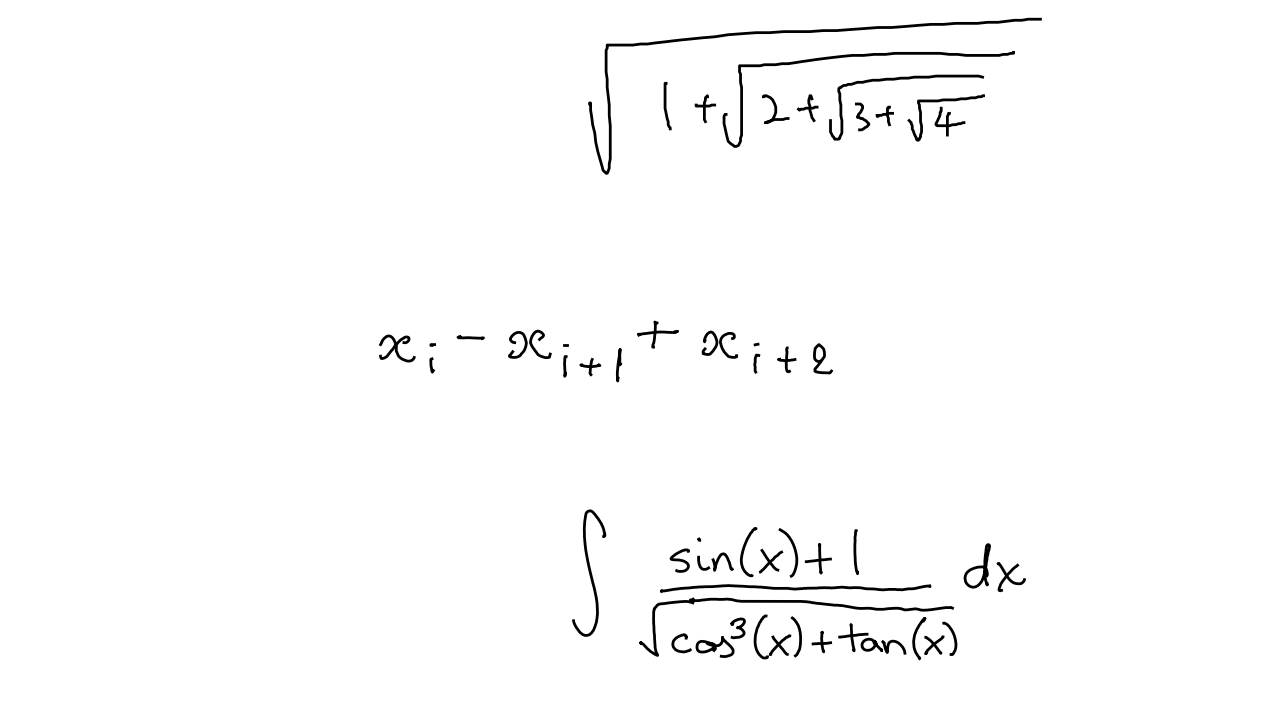 $\sqrt{1+\sqrt{2+\sqrt{3+\sqrt{4}}}}$
$x_i - x_{i+1} + x_{i+2}$
$\int \frac{\sin(x)+1}{\sqrt{\cos^3(x)+\tan(x)}} dx$